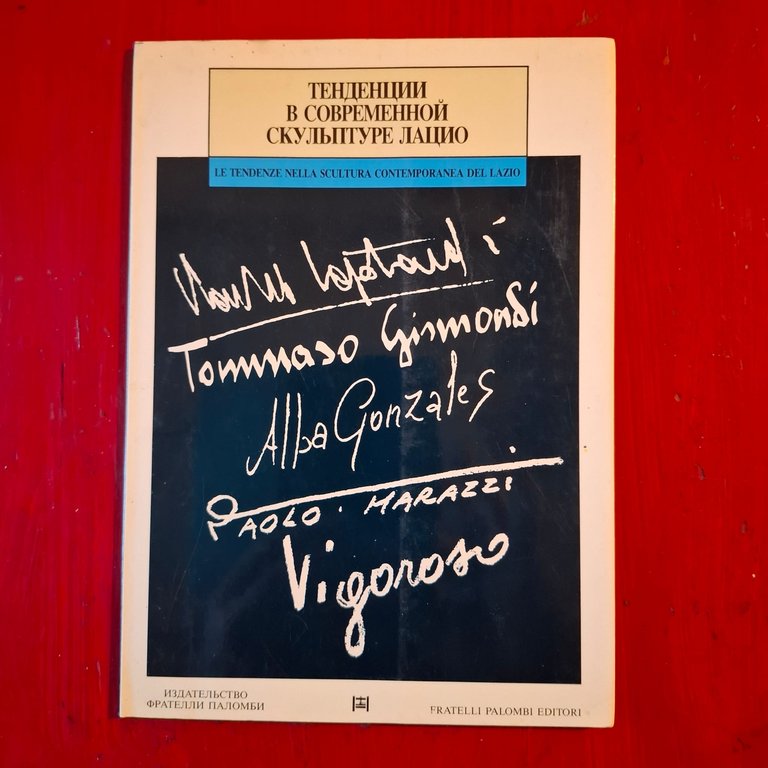 ТЕНДЕНЦИИ
В СОВРЕМЕННОЙ
СКУЛЬПТУРЕ ЛАЦИО
LE TENDENZE NELLA SCULTURA CONTEMPORANEA DEL LAZIO
Tommaso Gismondi
Alba Gonzales
PAOLO · MARAZZI
Vigoroso
ИЗДАТЕЛЬСТВО
ФРАТЕЛЛИ ПАЛОМБИ
FRATELLI PALOMBI EDITORI